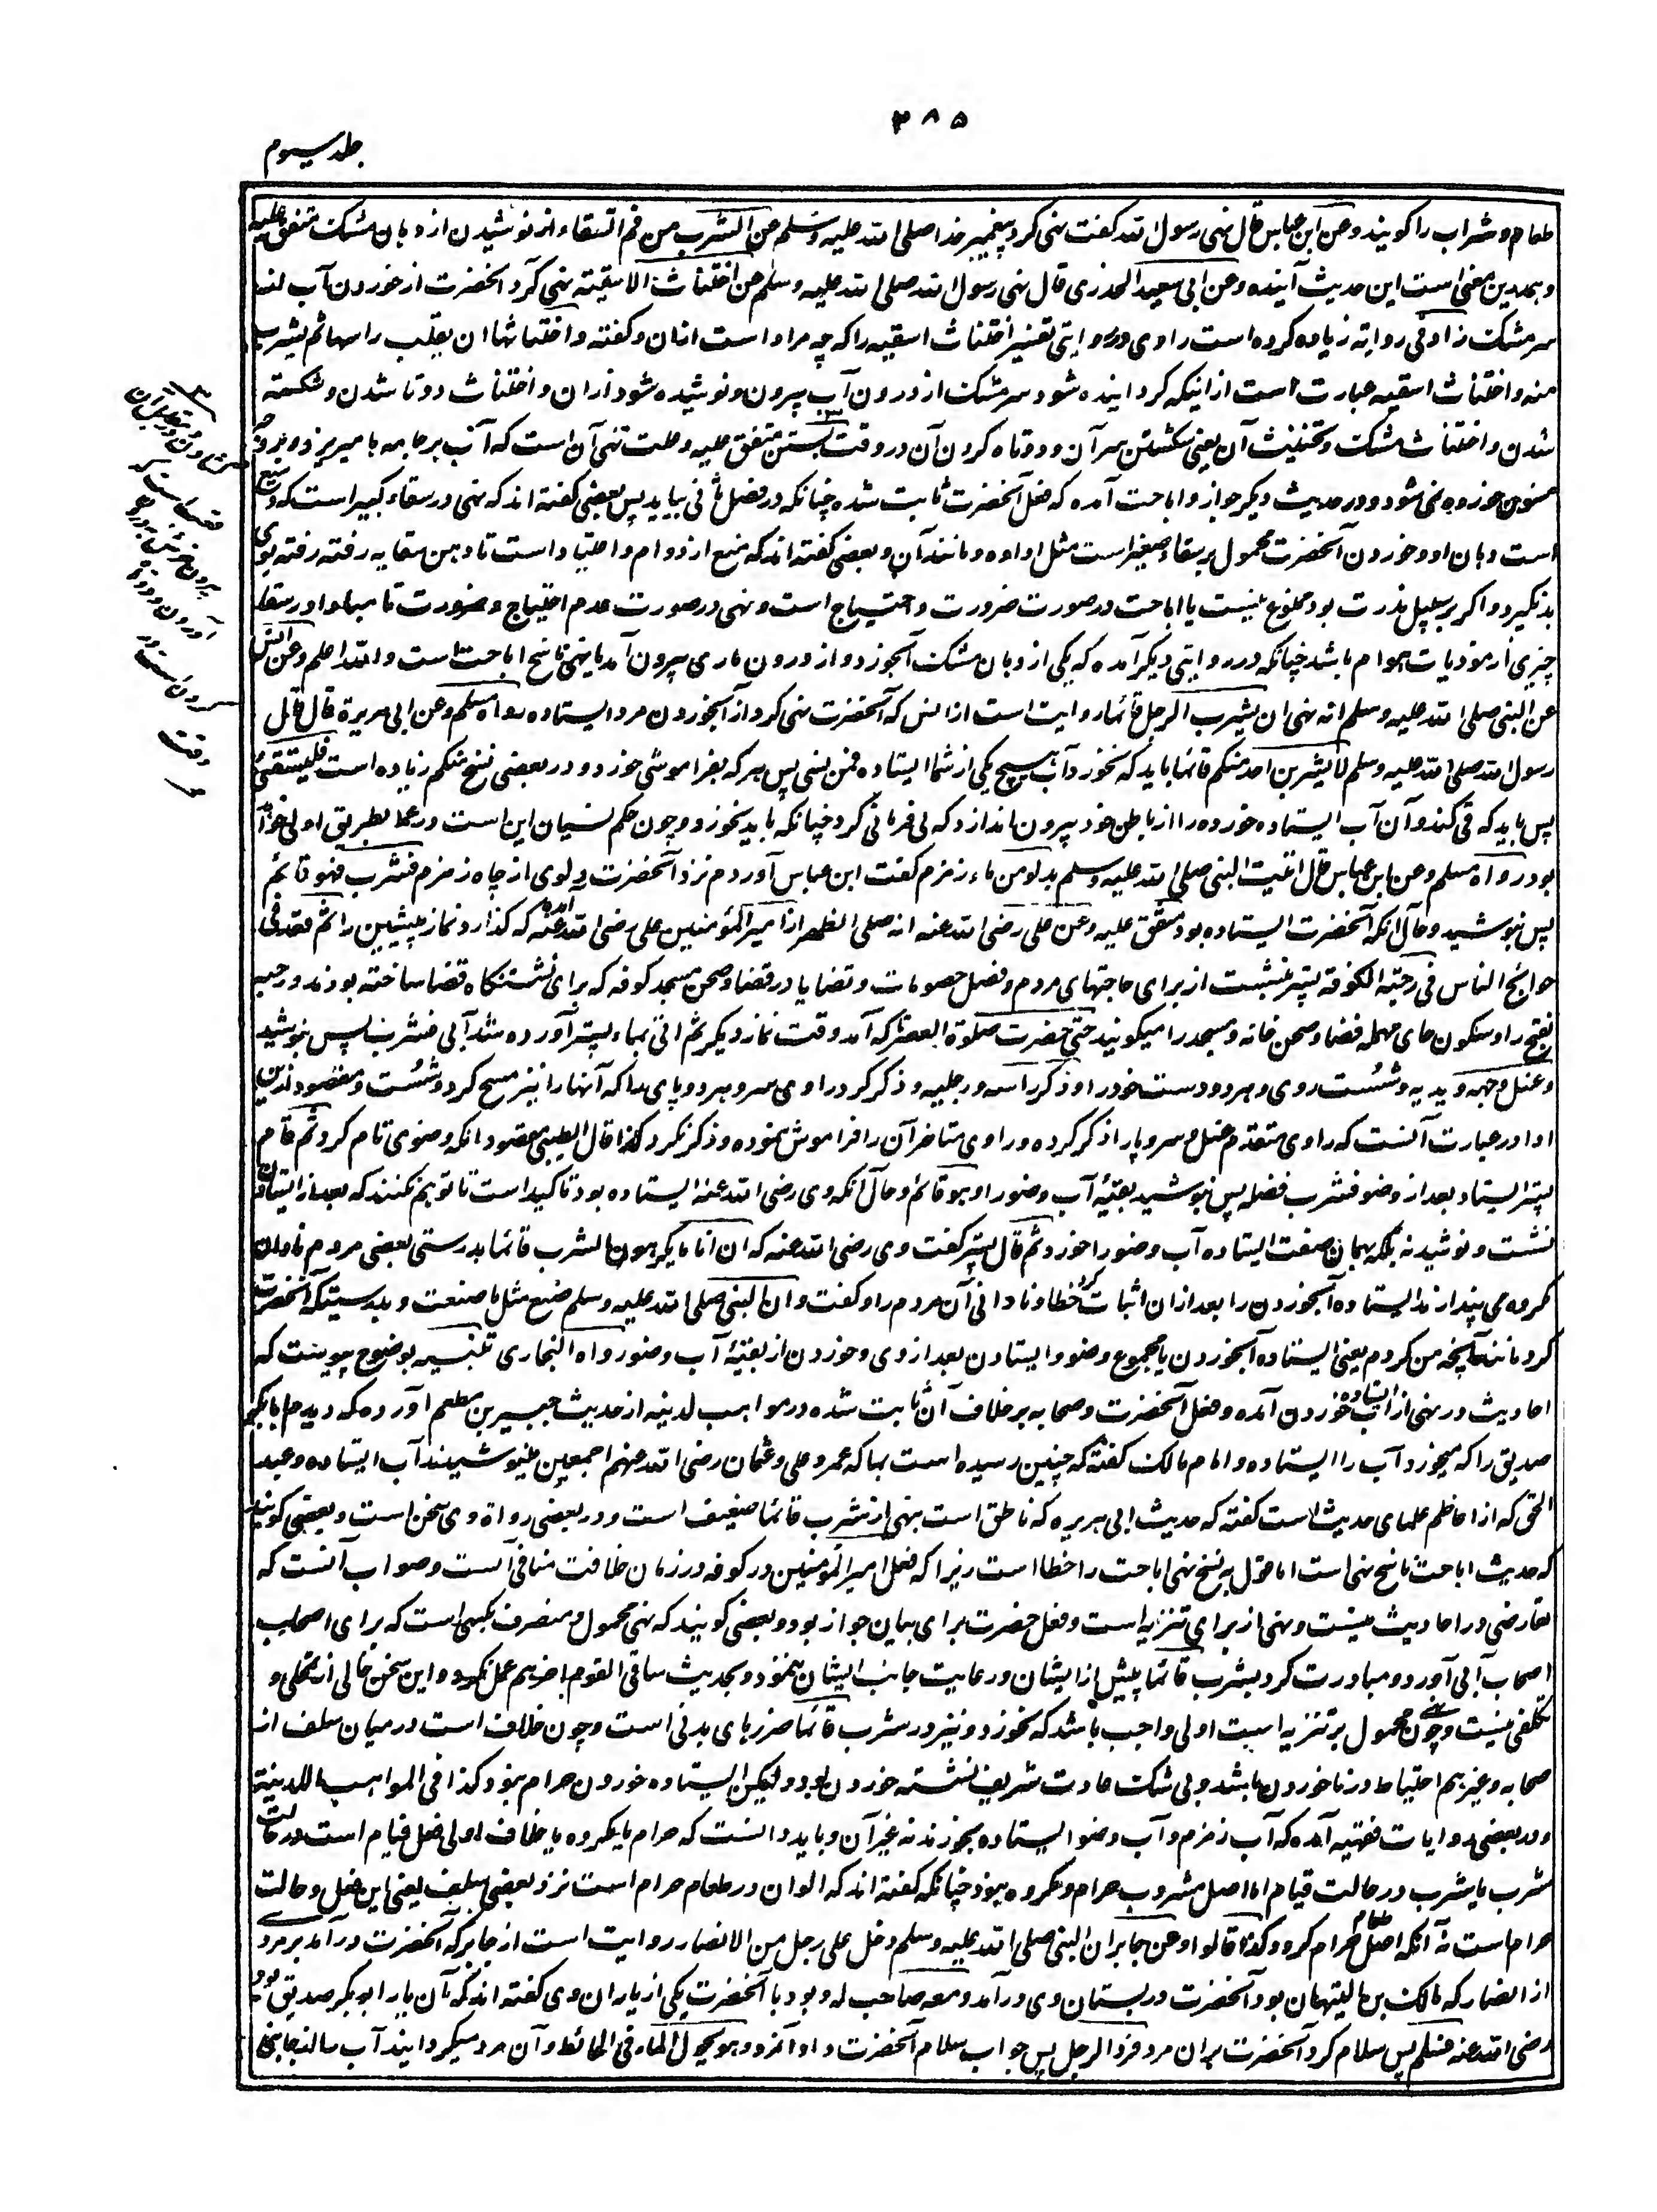 ۳۸۵
جلد سیوم
طعام و شراب را گویند وعن ابن عباس قال نهی رسول الله گفت نهی کرد پیغمبر خدا صلی الله علیه وسلم عن الشرب من فم السقاء از نوشیدن از دهان مشک متفق علیه
و بهمدین معنی است این حدیث آینده وعن ابی سعید الخدری قال نهی رسول الله صلی الله علیه وسلم عن اختناث الاسقیة نهی کرد آنحضرت از خوردن آب از
سر مشک زاد فی روایة زیاده کرده است راوی در روایتی تفسیر اختناث اسقیه را که چه مراد است ازان و گفته و اختناثها ان یقلب راسها ثم یشرب
منه و اختناث اسقیه عبارت است از اینکه گردانیده شود سر مشک از درون آب بیرون و نوشیده شود ازان و اختناث دوتا شدن و شکسته
شدن و اختناث مشک و تخنیث آن یعنی شکستن سر آن و دوتاه کردن آن در وقت بستن متفق علیه و علت نهی آن است که آب بر جامه بامیریزد و بروجه
مسنون خورده نمی شود و در حدیث دیگر جواز و اباحت آمده که فعل آنحضرت ثابت شده چنانکه در فصل ثانی بیاید پس بعضی گفته اند که نهی در سقاء کبیر است که وسیع
است دهان او و خوردن آنحضرت محمول بر سقاء صغیر است مثل اداوه و مانند آن و بعضی گفته اند که منع از دوام و اعتیاد است تا دهن سقایه رفته رفته بوی
بد نگیرد و اگر بر سبیل ندرت بود ممنوع نیست یا اباحت در صورت ضرورت و احتیاج است و نهی در صورت عدم احتیاج و ضرورت تا مبادا در سقا
چیزی از موذیات هوام باشد چنانکه در روایتی دیگر آمده که یکی از دهان مشک آبخورد و از درون ماری بیرون آمد یا نهی ناسخ اباحت است والله اعلم وعن انس
عن النبی صلی الله علیه وسلم انه نهی ان یشرب الرجل قائما روایت است از انس که آنحضرت نهی کرد از آبخوردن مرد ایستاده رواه مسلم وعن ابی هریرة قال قال
رسول الله صلی الله علیه وسلم لا یشربن احد منکم قائما باید که نخورد آب هیچ یکی از شما ایستاده فمن نسی پس هر که بفراموشی خورد و در بعضی نسخ منکم زیاده است فلیستقئ
پس باید که قی کند و آن آب ایستاده خورده را از باطن خود بیرون اندازد که بی فرمانی کرد چنانکه باید نخورد و چون حکم نسیان این است در عمد بطریق اولی خواهد
بود رواه مسلم وعن ابن عباس قال اتیت النبی صلی الله علیه وسلم بدلو من ماء زمزم گفت ابن عباس آوردم نزد آنحضرت دلوی از چاه زمزم فشرب و هو قائم
پس نوشید و حال آنکه آنحضرت ایستاده بود متفق علیه وعن علی رضی الله عنه انه صلی الظهر از امیر المؤمنین علی رضی الله عنه آمده که گذارد نماز پیشین را ثم قعد فی
حوائج الناس فی رحبة الکوفة پستر نشست از برای حاجتهای مردم و فصل خصومات و قضایا در فضا و صحن مسجد کوفه که برای نشستنگاه قضا ساخته بودند و رحبه
بفتح را و سکون حای مهمله فضا و صحن خانه و مسجد را میگویند حتی حضرت صلوة العصر که آمد وقت نماز دیگر ثم اتی بماء پستر آورده شد آبی فشرب پس نوشید
و غسل وجهه و یدیه و شست روی و هر دو دست خود را و ذکر راسه و رجلیه و ذکر کرد راوی سر و هر دو پای را که آنها را نیز مسح کرد و شست و مقصود از این
ادا در عبارت آنست که راوی متقدم غسل سر و پا را ذکر کرده و راوی متاخر آن را فراموش نموده و ذکر نکرد کذا قال الطیبی مقصود آنکه وضوی تام کرد ثم قام
پستر ایستاد بعد از وضو فشرب فضله پس نوشید بقیهٔ آب وضو را و هو قائم و حال آنکه وی رضی الله عنه ایستاده بود تاکید است تا توهم نکنند که بعد از ایستادن
نشست و نوشید نه بلکه بهمان صفت ایستاده آب وضو را خورد ثم قال پستر گفت وی رضی الله عنه که ان اناسا یکرهون الشرب قائما بدرستی بعضی مردم نادان
مکروه می پندارند ایستاده آبخوردن را بعد ازان اثبات کرد خطا و نادانی آن مردم را و گفت وان النبی صلی الله علیه وسلم صنع مثل ما صنعت و بدرستیکه آنحضرت
کرد مانند آنچه من کردم یعنی ایستاده آبخوردن یا مجموع وضو و ایستادن بعد از وی و خوردن از بقیهٔ آب وضو رواه البخاری تنبیه بوضوح پیوست که
احادیث در نهی از ایستاده آب خوردن آمده و فعل آنحضرت و صحابه بر خلاف آن ثابت شده در مواهب لدنیه از حدیث جبیر بن مطعم آورده که دیدم ابا بکر
صدیق را که میخورد آب را ایستاده و امام مالک گفته که چنین رسیده است بما که عمر و علی و عثمان رضی الله عنهم اجمعین مینوشیدند آب ایستاده و عبد
الحق که از اعاظم علمای حدیث است گفته که حدیث ابی هریره که ناطق است بنهی از شرب قائما ضعیف است و در بعضی رواة وی سخن است و بعضی گویند
که حدیث اباحت ناسخ نهی است اما قول به نسخ نهی اباحت را خطا است زیرا که فعل امیر المؤمنین در کوفه در زمان خلافت منافی آنست و صواب آنست که
تعارضی در احادیث نیست و نهی از برای تنزیه است و فعل حضرت برای بیان جواز بود و بعضی گویند که نهی محمول و منصرف بکسی است که برای اصحاب
اصحاب آبی آورد و مبادرت کرد بشرب قائما پیش از ایشان و رعایت جانب ایشان ننمود و بحدیث ساقی القوم آخرهم عمل نکرد و این سخن خالی از تمحلی و
تکلفی نیست و چون نهی محمول بر تنزیه است اولی و اجب باشد که نخورد و نیز در شرب قائما ضررهای بدنی است و چون خلاف است در میان سلف از
صحابه و غیرهم احتیاط در ناخوردن باشد و بی شک عادت شریف نشسته خوردن بود ولیکن ایستاده خوردن حرام نبود کذا فی المواهب اللدنیة
و در بعضی روایات فقهیه آمده که آب زمزم و آب وضو ایستاده بخورند نه غیر آن و باید دانست که حرام یا مکروه یا خلاف اولی فعل قیام است در حالت
شرب یا شرب در حالت قیام اما اصل مشروب حرام و مکروه نبود چنانکه گفته اند که الوان در طعام حرام است نزد بعضی سلف یعنی این فعل و حالت
حرام است نه آنکه اصل طعام حرام گردد کذا قالوا وعن جابر ان النبی صلی الله علیه وسلم دخل علی رجل من الانصار روایت است از جابر که آنحضرت در آمد بر مردی
از انصار که مالک بن التیهان بود آنحضرت در بستان وی در آمد و معه صاحب له و بود با آنحضرت یکی از یاران وی گفته اند که آن یار ابوبکر صدیق بود
رضی الله عنه فسلم پس سلام کرد آنحضرت بران مرد فرد الرجل پس جواب سلام آنحضرت داد آنمرد وهو یحول الماء فی الحائط و آن مرد میگردانید آب را از جانبی